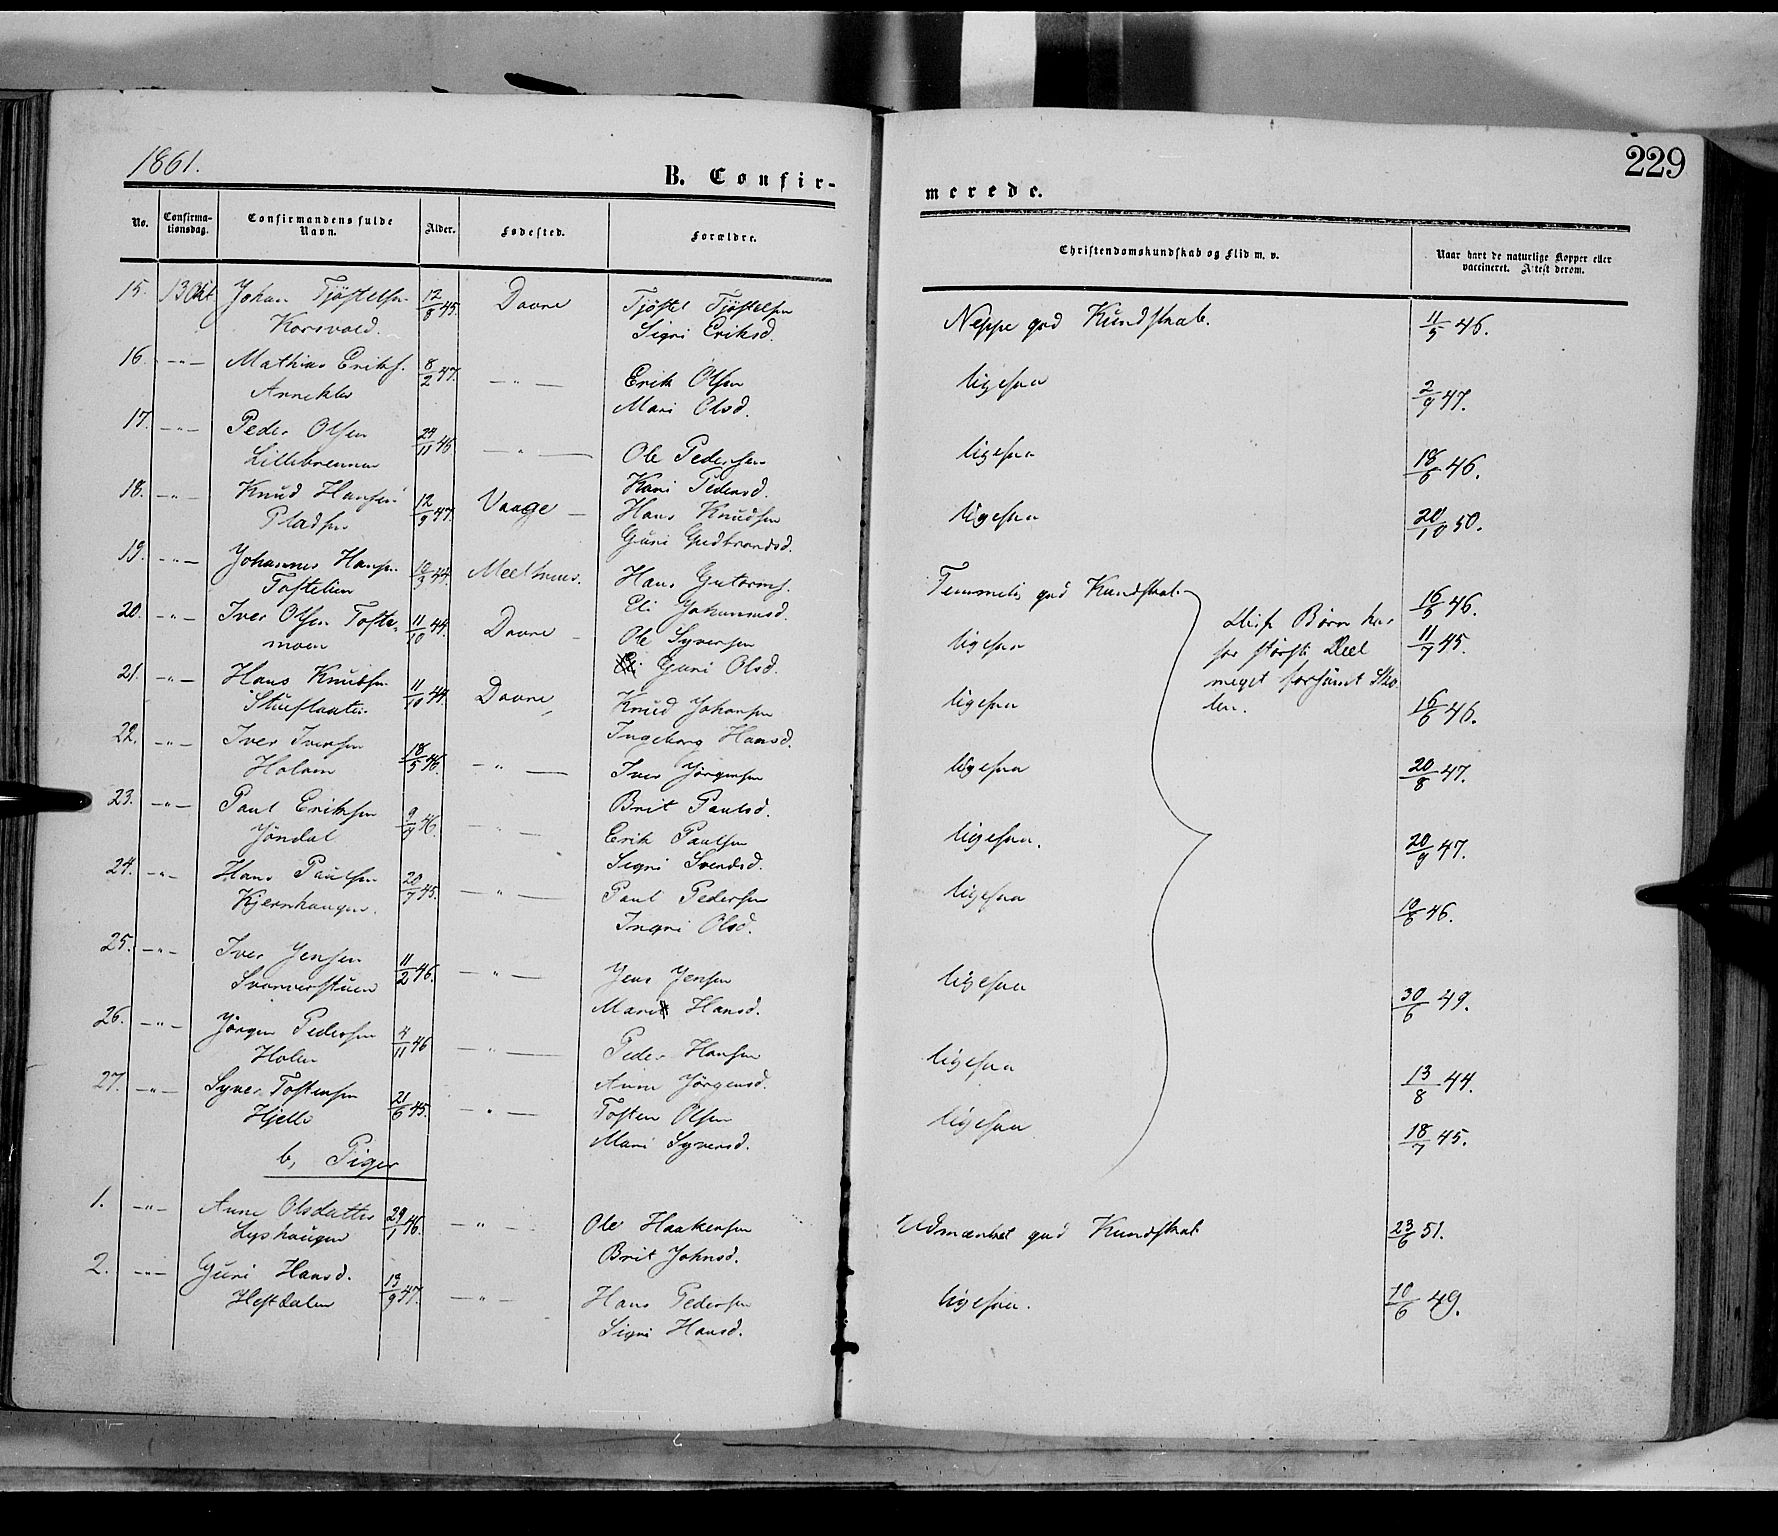 1861.
B. Confir-
merede.
229
No. Confirma-tionsdag. Confirmandens fulde Navn. Alder. Fødested. Forældre. Christendomskundskab og Flid m. v. Naar havt de naturlige Kopper eller vaccineret. Attest derom.
15. 13 Okt Johan Tjøstelsen 12/8 45. Dovre Tjøstel Tjøstelsen Neppe god Kundskab. 11/5 46.
Korsvold. Sigri Eriksd.
16. -"- Mathias Eriks. 8/2 47. -"- Erik Olsen ligesaa 2/9 47.
Mari Olsd.
17. -"- Peder Olsen 24/11 46 -"- Ole Pedersen ligesaa 18/6 46.
Lillebrennen Kari Pedersd.
18. -"- Knud Hansen 12/9 47. Vaage Hans Knudsen ligesaa 20/10 50.
Pladsen Guri Gudbrandsd.
19. -"- Johannes Hansen 10/3 44. Hans Guttorms. Temmelig god Kundskab 16/5 46.
Toftelien Eli Johannesd.
20. -"- Iver Olsen Tofte- 11/10 44. Dovre Ole Syversen ligesaa 11/7 45.
moen Guri Olsd.
21. -"- Hans Knudsen 11/10 44. Dovre Knud Johansen ligesaa 16/6 46.
Stueflaaten Ingeborg Hansd.
Disse Børn har
for største Deel
meget forsømt Sko-
len.
22. -"- Iver Iversen 18/5 46. -"- Iver Jørgensen ligesaa 20/8 47.
Holum Brit Paulsd.
23. -"- Paul Eriksen 9/9 46. -"- Erik Paulsen ligesaa. 20/9 47.
Jøndal Sigri Svendsd.
24. -"- Hans Paulsen 20/7 45. -"- Paul Pedersen ligesaa 19/6 46.
Kjernhaugen. Ingri Olsd.
25. -"- Iver Jensen 11/2 46. -"- Jens Jensen ligesaa 30/6 49.
Svarverstuen Mari Hansd.
26. -"- Jørgen Pedersen 4/11 46 -"- Peder Hansen ligesaa 13/8 44.
Holen Anne Jørgensd.
27. -"- Syver Tostensen 21/6 45. -"- Tosten Olsen ligesaa 18/7 45.
Hjelle Mari Syversd.
b, Piger
1. -"- Anne Olsdatter 29/1 46. -"- Ole Haakensen Udmærket god Kundskab 23/6 51.
Lyshaugen Brit Johnsd.
2. -"- Guri Hansd. 13/9 47. -"- Hans Pedersen ligesaa. 10/6 49.
Hestdalen Sigri Hansd.